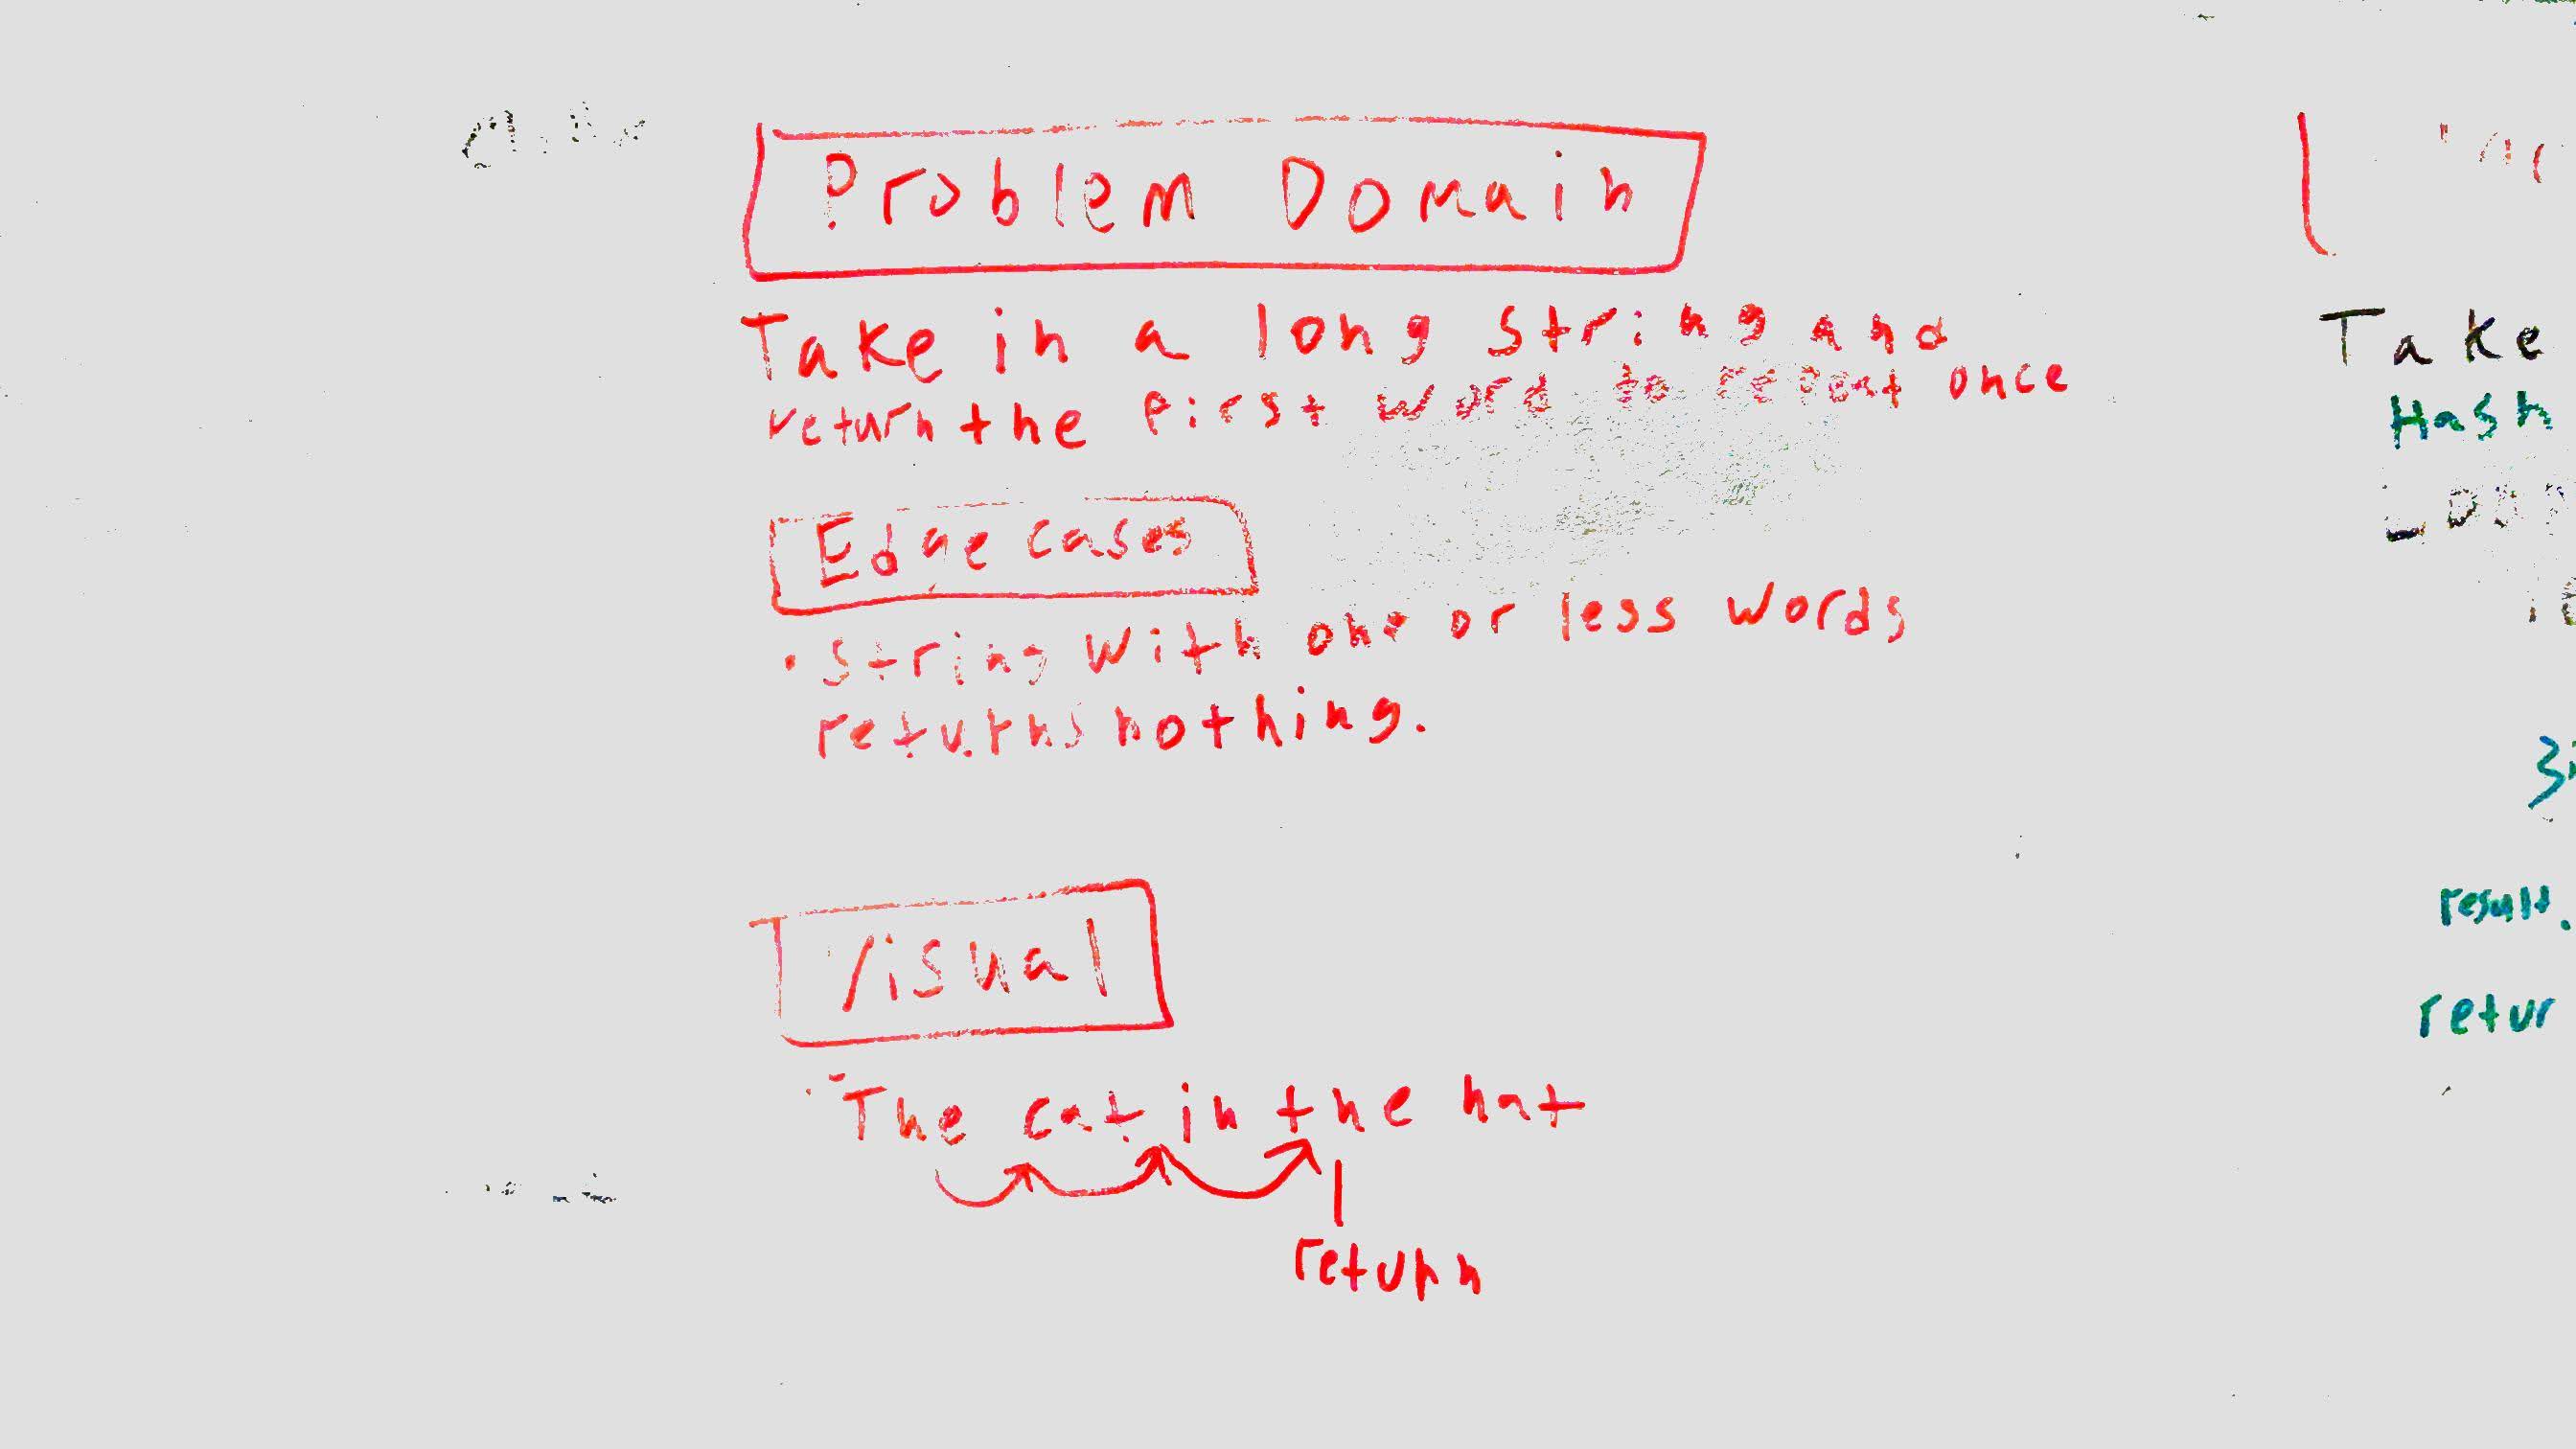 Problem Domain
Take in a long string and
return the first word to repeat once
Edge cases
• string with one or less words
returns nothing.
Visual
"The cat in the hat
return
Take
Hash
result.
retur